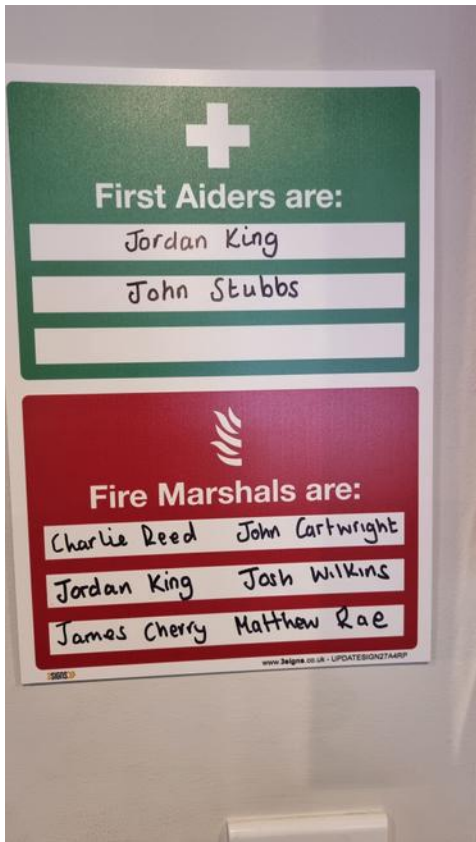 First Aiders are:
Jordan King
John Stubbs
Fire Marshals are:
Charlie Reed John Cartwright
Jordan King Josh Wilkins
James Cherry Matthew Rae
www.3signs.co.uk - UPDATESIGN27A4RP
3SIGNS